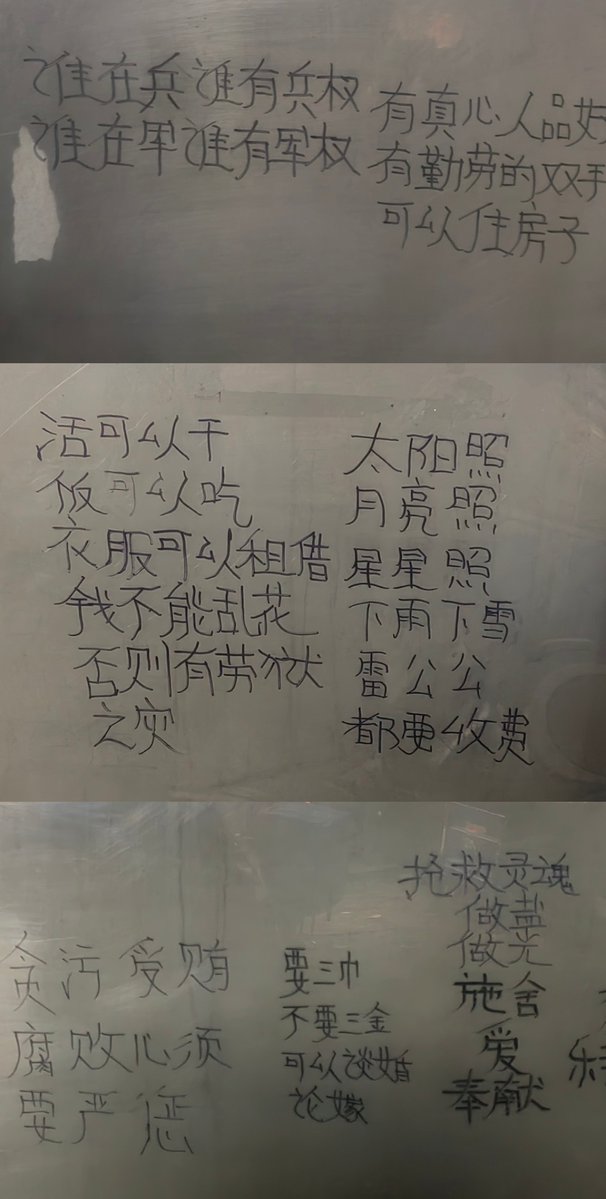 谁在兵谁有兵权
谁在军谁有军权
有真心人品好
有勤劳的双手
可以住房子
活可以干
饭可以吃
衣服可以租借
钱不能乱花
否则有劳狱
之灾
太阳照
月亮照
星星照
下雨下雪
雷公公
都要收费
贪污受贿
腐败心须
要严惩
要三巾
不要三金
可以谈婚
论嫁
抢救灵魂
做盐
做光
施舍
爱
奉献